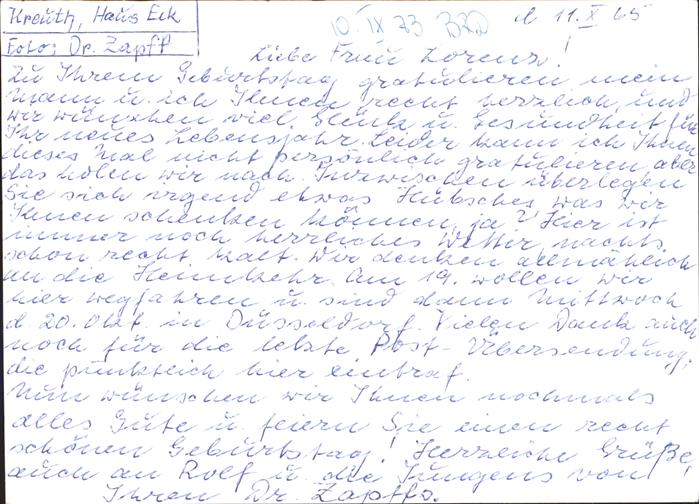 Kreuth, Haus Eck
Foto: Dr. Zapff
10. IX 73
d 11. X 65
Liebe Frau Lorenz!
Zu Ihrem Geburtstag gratulieren mein
Mann u. ich Ihnen recht herzlich und
wir wünschen viel Glück u. Gesundheit für
Ihr neues Lebensjahr. Leider kann ich Ihnen
dieses Mal nicht persönlich gratulieren aber
das holen wir nach. Inzwischen überlegen
Sie sich irgend etwas Hübsches, was wir
Ihnen schenken können, ja? Hier ist
immer noch herrliches Wetter, nachts
schon recht kalt. Wir denken allmählich
an die Heimkehr. Am 19. wollen wir
hier wegfahren u. sind dann Mittwoch
d. 20. Okt. in Düsseldorf. Vielen Dank auch
noch für die letzte Post-Übersendung,
die pünktlich hier eintraf.
Nun wünschen wir Ihnen nochmals
alles Gute u. feiern Sie einen recht
schönen Geburtstag! Herzliche Grüße,
auch an Rolf u. die Jungens von
Ihren Dr. Zapffs.